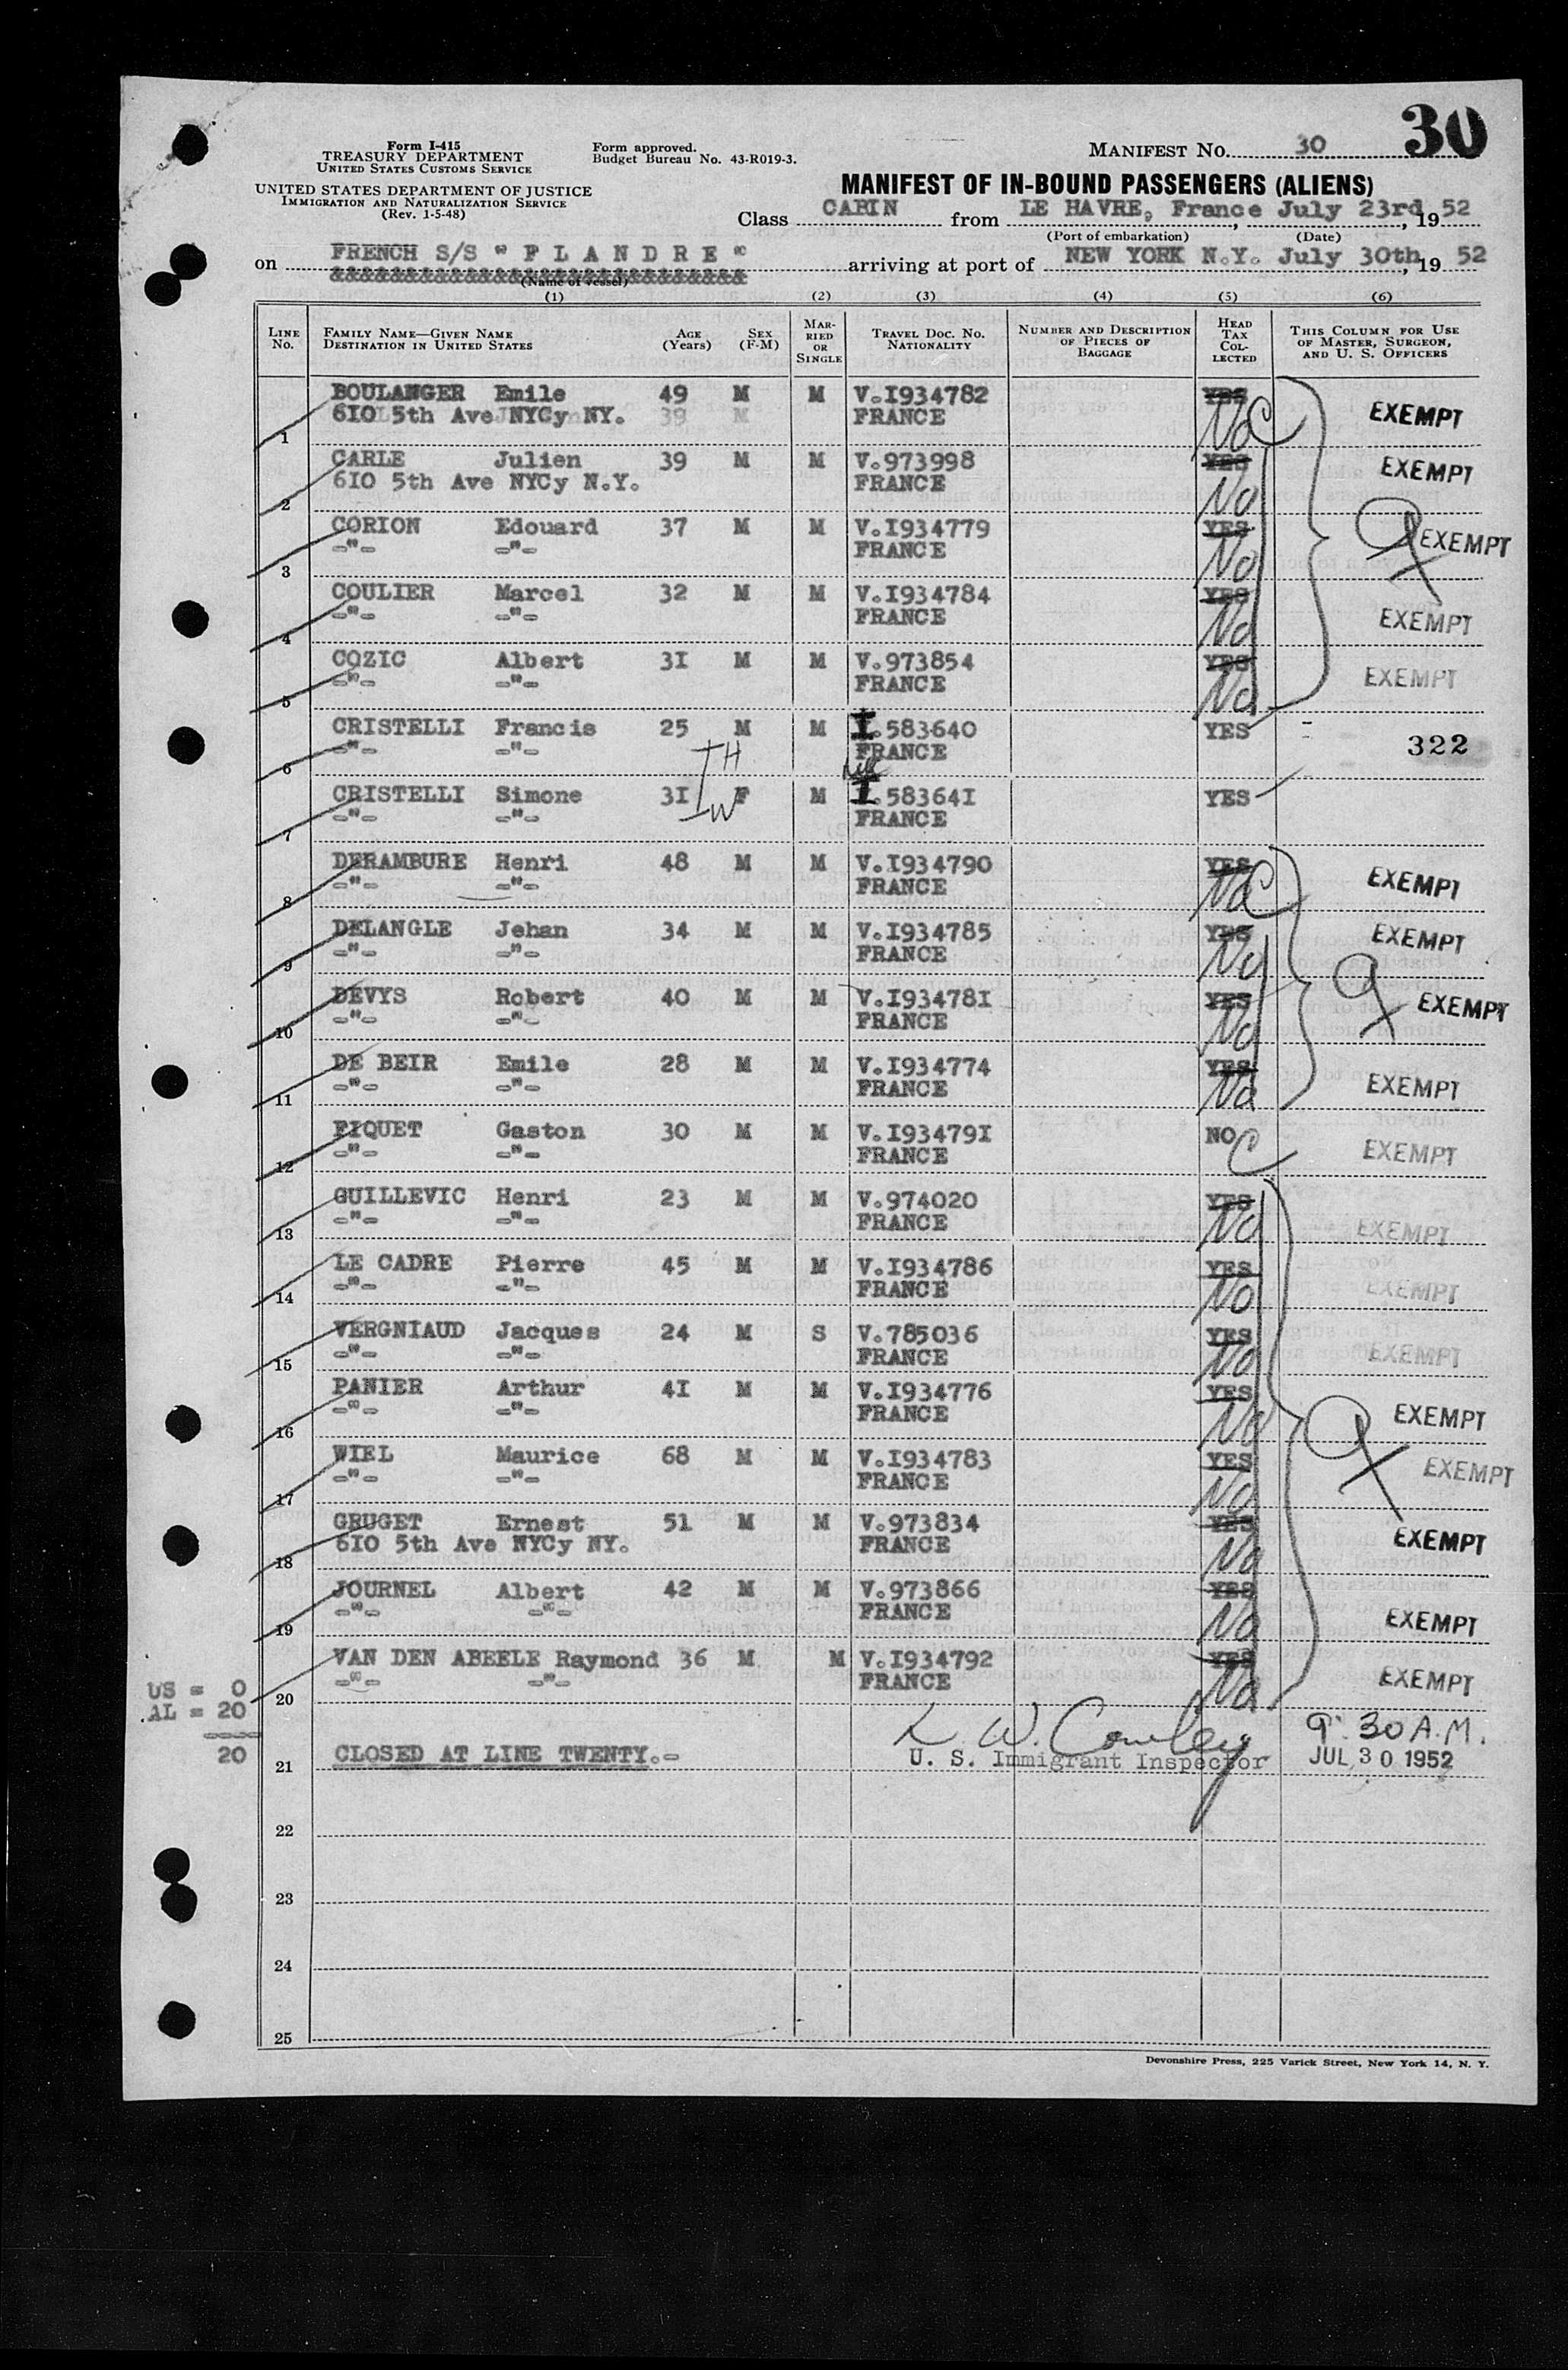 30
Form I-415
TREASURY DEPARTMENT
UNITED STATES CUSTOMS SERVICE
UNITED STATES DEPARTMENT OF JUSTICE
IMMIGRATION AND NATURALIZATION SERVICE
(Rev. 1-5-48)
Form approved.
Budget Bureau No. 43-R019-3.
MANIFEST NO. 30
MANIFEST OF IN-BOUND PASSENGERS (ALIENS)
Class CABIN from LE HAVRE, France July 23rd, 19 52
(Port of embarkation) (Date)
on FRENCH S/S " F L A N D R E " arriving at port of NEW YORK N.Y. July 30th, 19 52
&&&&&&&&&&&&&&&&&&&&&&&&&&&
(Name of vessel)
(1) (2) (3) (4) (5) (6)
LINE NO. FAMILY NAME—GIVEN NAME DESTINATION IN UNITED STATES AGE (Years) SEX (F-M) MARRIED OR SINGLE TRAVEL DOC. NO. NATIONALITY NUMBER AND DESCRIPTION OF PIECES OF BAGGAGE HEAD TAX COLLECTED THIS COLUMN FOR USE OF MASTER, SURGEON, AND U. S. OFFICERS
BOULANGER Emile 49 M M V.I934782 YES
1 6IO 5th Ave NYCy NY. 39 M FRANCE No C EXEMPT
CARLE Julien 39 M M V.973998 YES EXEMPT
2 6IO 5th Ave NYCy N.Y. FRANCE No
CORION Edouard 37 M M V.I934779 YES EXEMPT
3 -"- -"- FRANCE No
COULIER Marcel 32 M M V.I934784 YES
4 -"- -"- FRANCE No EXEMPT
COZIC Albert 3I M M V.973854 YES
5 -"- -"- FRANCE No EXEMPT
CRISTELLI Francis 25 M M I.583640 YES
6 -"- -"- H FRANCE 322
CRISTELLI Simone 3I F M I.58364I YES
7 -"- -"- W FRANCE
DERAMBURE Henri 48 M M V.I934790 YES
8 -"- -"- FRANCE No C EXEMPT
DELANGLE Jehan 34 M M V.I934785 YES EXEMPT
9 -"- -"- FRANCE No
DEVYS Robert 40 M M V.I93478I YES EXEMPT
10 -"- -"- FRANCE No
DE BEIR Emile 28 M M V.I934774 YES
11 -"- -"- FRANCE No EXEMPT
FIQUET Gaston 30 M M V.I93479I NO
12 -"- -"- FRANCE C EXEMPT
GUILLEVIC Henri 23 M M V.974020 YES
13 -"- -"- FRANCE No EXEMPT
LE CADRE Pierre 45 M M V.I934786 YES
14 -"- -"- FRANCE No EXEMPT
VERGNIAUD Jacques 24 M S V.785036 YES
15 -"- -"- FRANCE No EXEMPT
PANIER Arthur 4I M M V.I934776 YES
16 -"- -"- FRANCE No EXEMPT
WIEL Maurice 68 M M V.I934783 YES
17 -"- -"- FRANCE No EXEMPT
GRUGET Ernest 51 M M V.973834 YES
18 6IO 5th Ave NYCy NY. FRANCE No EXEMPT
JOURNEL Albert 42 M M V.973866 YES
19 -"- -"- FRANCE No EXEMPT
VAN DEN ABEELE Raymond 36 M M V.I934792 YES
20 -"- -"- FRANCE No EXEMPT
US = 0
AL = 20
20
21 CLOSED AT LINE TWENTY.-
9:30 A.M.
U. S. Immigrant Inspector JUL 30 1952
22
23
24
25
Devonshire Press, 225 Varick Street, New York 14, N. Y.